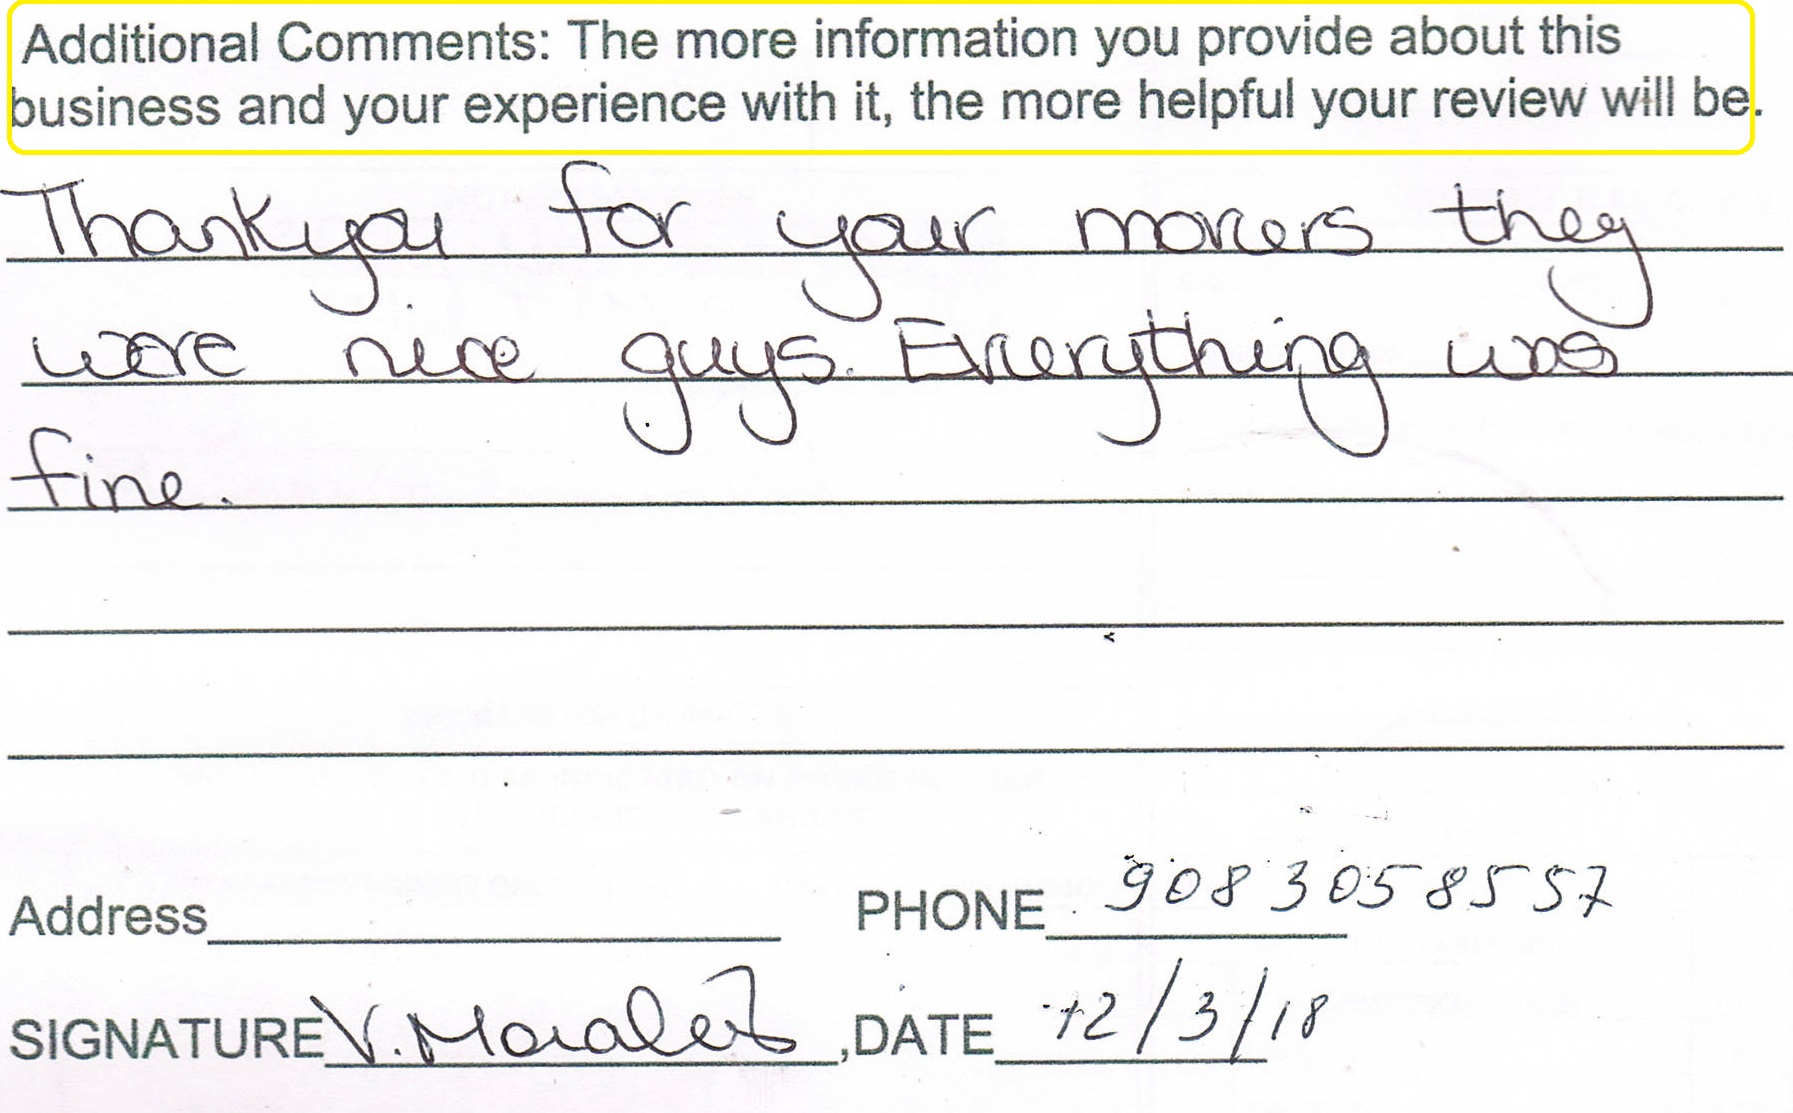 Additional Comments: The more information you provide about this
business and your experience with it, the more helpful your review will be.
Thankyou for your movers they
were nice guys. Everything was
fine.
Address PHONE 9083058557
SIGNATURE V. Morales, DATE 12/3/18